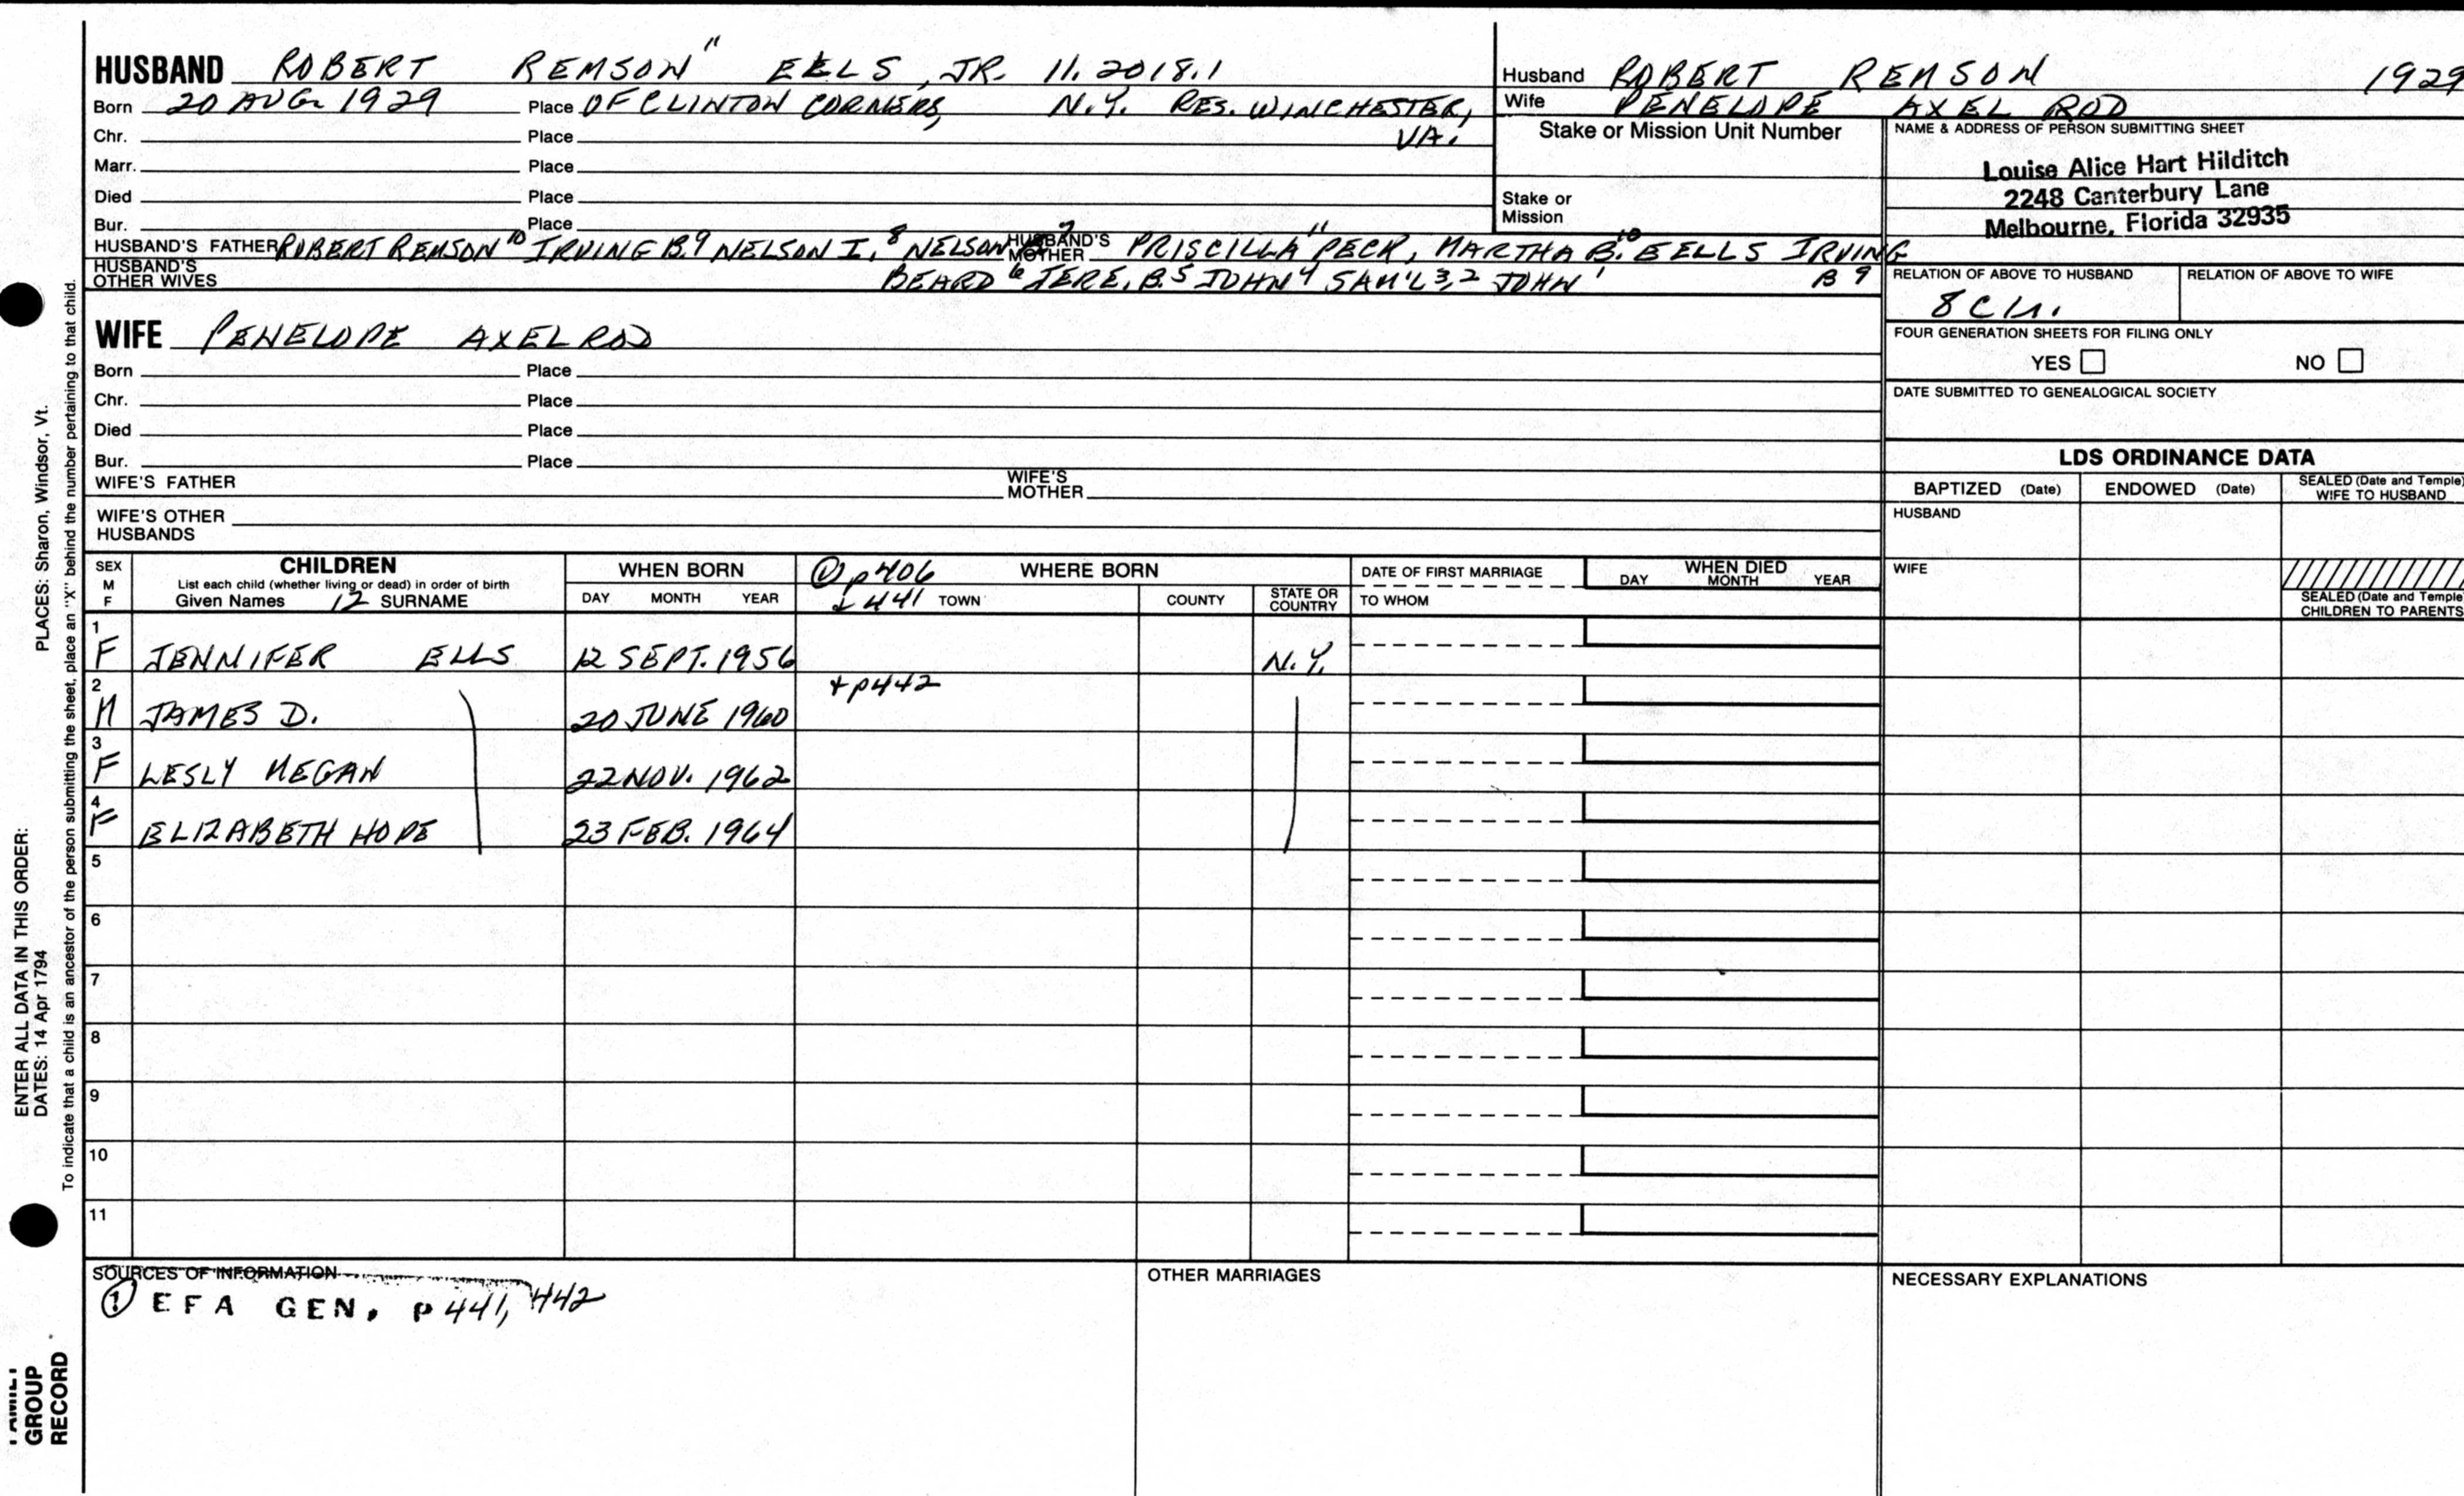 HUSBAND ROBERT REMSON" EELS, JR. 11.2018.1
Born 20 AUG 1929 Place OF CLINTON CORNERS, N.Y. RES. WINCHESTER,
Chr. Place VA.
Marr. Place
Died Place
Bur. Place
HUSBAND'S FATHER ROBERT REMSON 10 IRVING B.9 NELSON I, 8 NELSON 7 HUSBAND'S MOTHER PRISCILLA 11 PECK, MARTHA B. 10 EELLS IRVING
HUSBAND'S OTHER WIVES BEARD 6 JERE. B.5 JOHN 4 SAM'L 3,2 JOHN 1 B 9
Husband ROBERT REMSON 1929
Wife PENELOPE AXEL ROD
Stake or Mission Unit Number
Stake or
Mission
NAME & ADDRESS OF PERSON SUBMITTING SHEET
Louise Alice Hart Hilditch
2248 Canterbury Lane
Melbourne, Florida 32935
RELATION OF ABOVE TO HUSBAND RELATION OF ABOVE TO WIFE
8 C
FOUR GENERATION SHEETS FOR FILING ONLY
YES NO
DATE SUBMITTED TO GENEALOGICAL SOCIETY
WIFE PENELOPE AXELROD
Born Place
Chr. Place
Died Place
Bur. Place
WIFE'S FATHER WIFE'S MOTHER
WIFE'S OTHER
HUSBANDS
LDS ORDINANCE DATA
BAPTIZED (Date) ENDOWED (Date) SEALED (Date and Temple) WIFE TO HUSBAND
HUSBAND
WIFE
SEALED (Date and Temple
CHILDREN TO PARENTS
SEX M F
CHILDREN
List each child (whether living or dead) in order of birth
Given Names 12 SURNAME
WHEN BORN
DAY MONTH YEAR
① p406 WHERE BORN
+ 441 TOWN COUNTY STATE OR COUNTRY
DATE OF FIRST MARRIAGE
TO WHOM
WHEN DIED
DAY MONTH YEAR
1 F JENNIFER ELLS 12 SEPT. 1956 N.Y.
+ p442
2 M JAMES D. 20 JUNE 1960
3 F LESLY MEGAN 22 NOV. 1962
4 F ELIZABETH HOPE 23 FEB. 1964
5
6
7
8
9
10
11
SOURCES OF INFORMATION
① EFA GEN. p 441, 442
OTHER MARRIAGES
NECESSARY EXPLANATIONS
ENTER ALL DATA IN THIS ORDER:
DATES: 14 Apr 1794 PLACES: Sharon, Windsor, Vt.
To indicate that a child is an ancestor of the person submitting the sheet, place an "X" behind the number pertaining to that child.
FAMILY
GROUP
RECORD